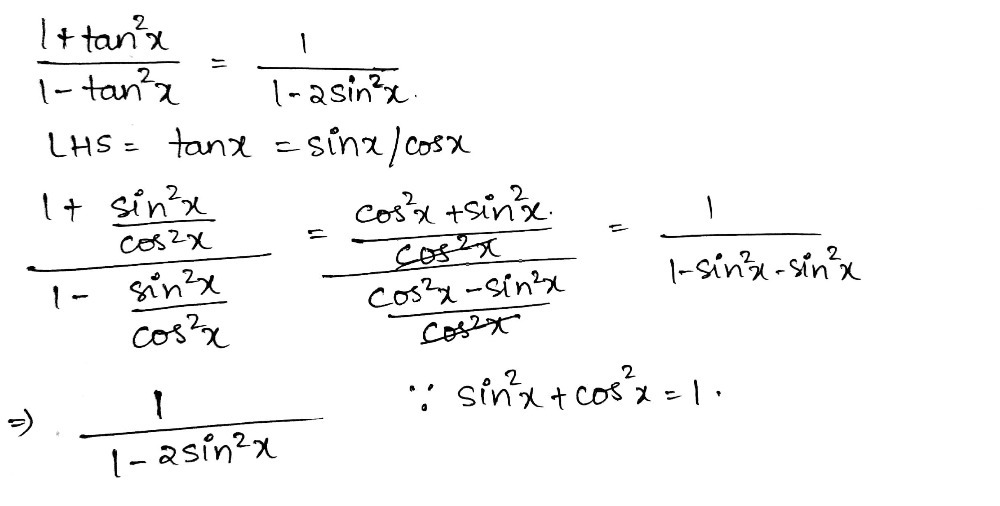 (1 + tan²x)/(1 - tan²x) = 1/(1 - 2sin²x).
LHS = tanx = sinx/cosx
(1 + sin²x/cos²x)/(1 - sin²x/cos²x) = ((cos²x + sin²x.)/cos²x)/((cos²x - sin²x)/cos²x) = 1/(1 - sin²x - sin²x)
⇒ 1/(1 - 2sin²x) ∵ sin²x + cos²x = 1.